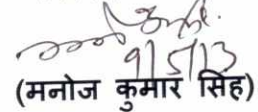 9/5/13
(मनोज कुमार सिंह)